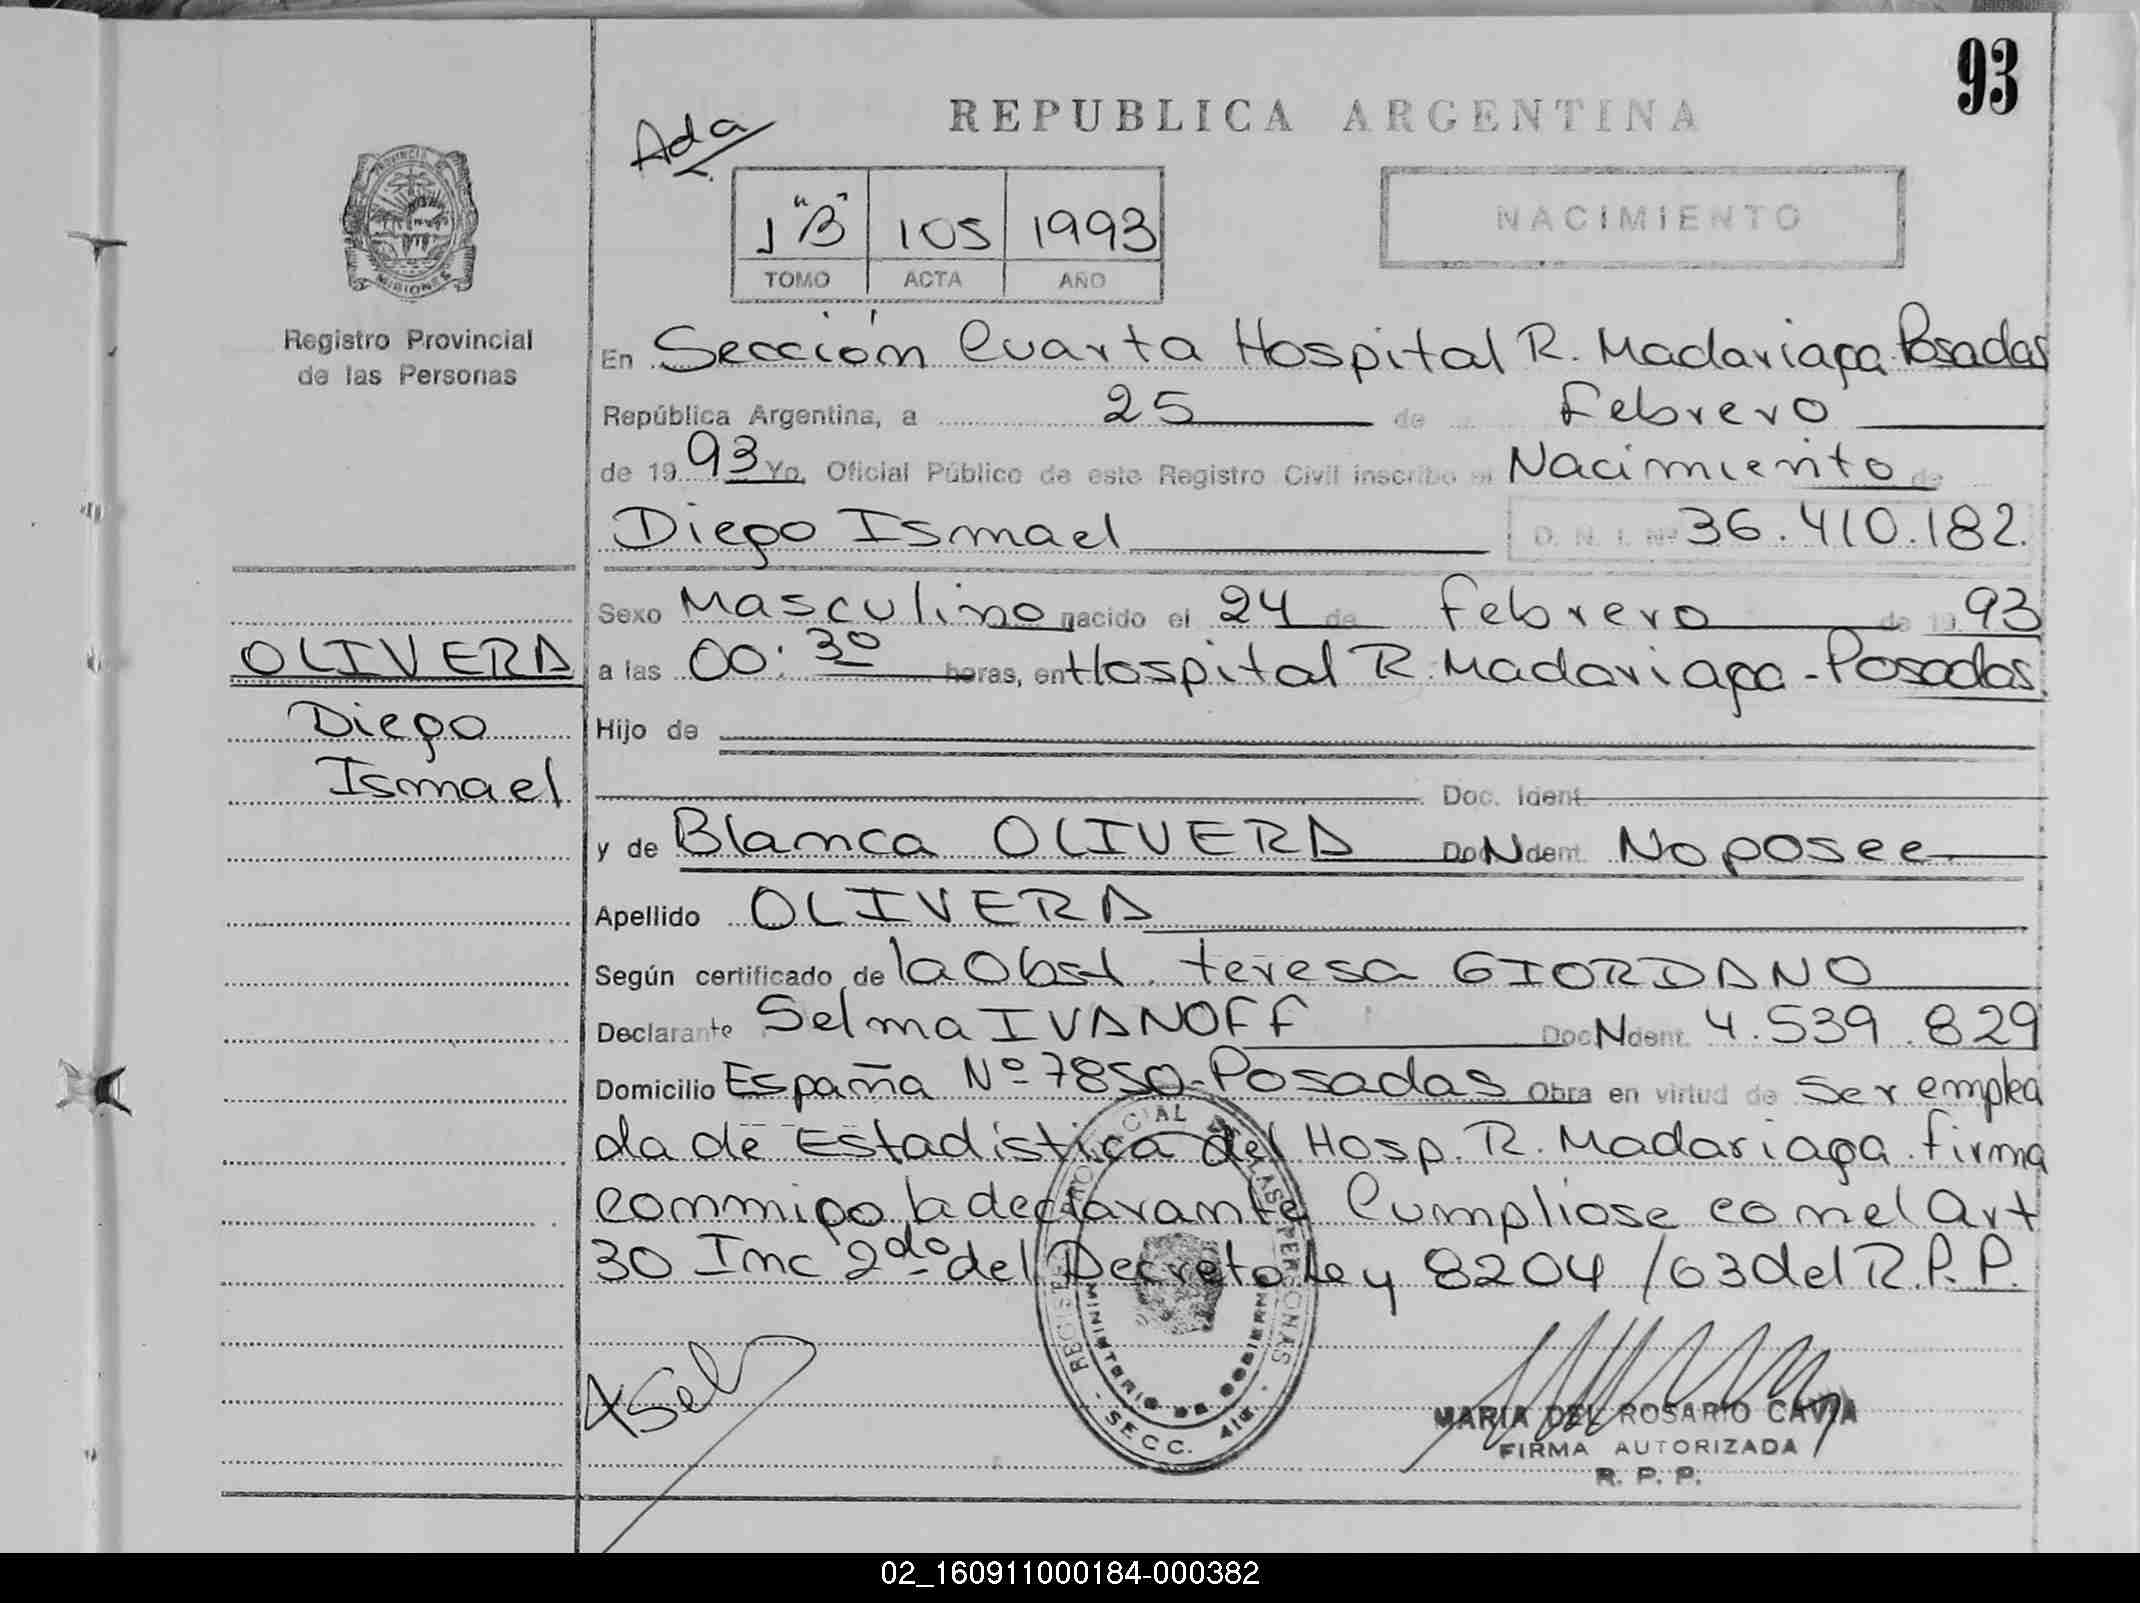 93
REPUBLICA ARGENTINA
Ada
1 "B" 105 1993
TOMO ACTA AÑO
NACIMIENTO
PROVINCIA DE
MISIONES
Registro Provincial
de las Personas
En Sección Cuarta Hospital R. Madariaga. Posadas
República Argentina, a 25 de Febrero
de 1993 Yo, Oficial Público de este Registro Civil inscribo el Nacimiento de
Diego Ismael D. N. I. Nº 36.410.182.
Sexo Masculino nacido el 24 de Febrero de 1993
a las 00:30 horas, en Hospital R. Madariaga - Posadas.
OLIVERA
Diego
Ismael
Hijo de
Doc. Ident
y de Blanca OLIVERA Doc N Ident. No posee
Apellido OLIVERA
Según certificado de la Obst. teresa GIORDANO
Declarante Selma IVANOFF Doc N Ident. 4.539.829
Domicilio España Nº 7850-Posadas Obra en virtud de ser emplea
da de Estadística del Hosp. R. Madariaga. firma
conmigo la declarante Cumpliose con el Art
30 Inc 2do del Decreto Ley 8204/63 del R.P.P.
REGISTRO PROVINCIAL DE LAS PERSONAS
MINISTERIO DE GOBIERNO
SECC. 4ta
MARIA DEL ROSARIO CAVIA
FIRMA AUTORIZADA
R. P. P.
02_160911000184-000382